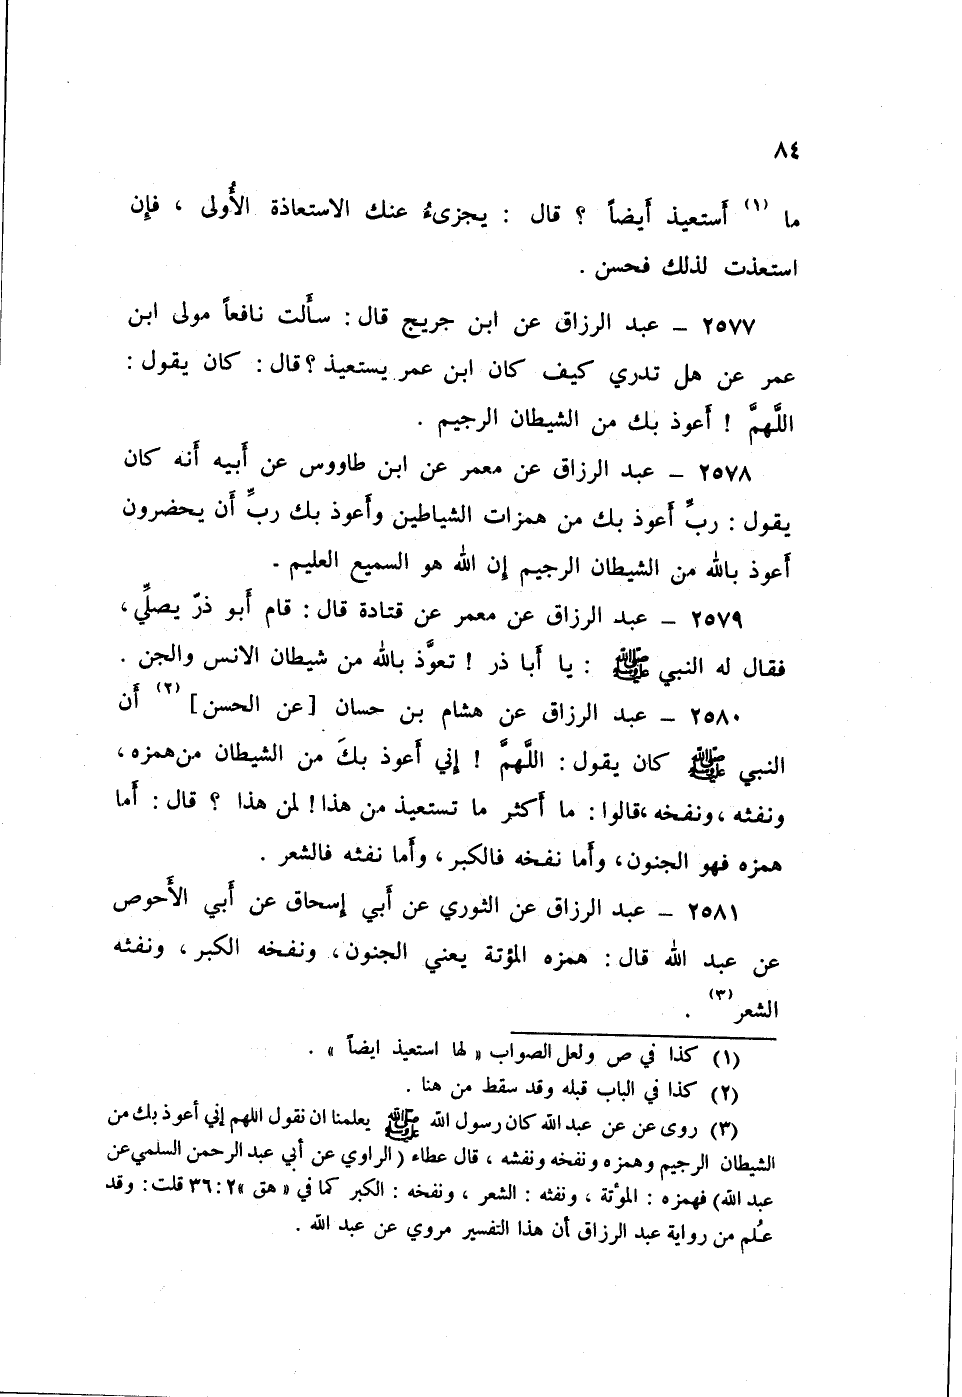 ٨٤
ما (١) أَستعيذ أَيضاً ؟ قال : يجزىءُ عنك الاستعاذة الأُولى ، فإِن
استعذت لذلك فحسن .
٢٥٧٧ – عبد الرزاق عن ابن جريج قال : سأَلت نافعاً مولى ابن
عمر عن هل تدري كيف كان ابن عمر يستعيذ ؟ قال : كان يقول :
اللَّهمَّ ! أَعوذ بك من الشيطان الرجيم .
٢٥٧٨ – عبد الرزاق عن معمر عن ابن طاووس عن أَبيه أَنه كان
يقول : ربِّ أَعوذ بك من همزات الشياطين وأَعوذ بك ربِّ أَن يحضرون
أَعوذ بالله من الشيطان الرجيم إِن الله هو السميع العليم .
٢٥٧٩ – عبد الرزاق عن معمر عن قتادة قال : قام أَبو ذرّ يصلِّي ،
فقال له النبي ﷺ : يا أَبا ذر ! تعوَّذ بالله من شيطان الانس والجن .
٢٥٨٠ – عبد الرزاق عن هشام بن حسان [ عن الحسن ] (٢) أَن
النبي ﷺ كان يقول : اللَّهمَّ ! إِني أَعوذ بكَ من الشيطان من همزه ،
ونفثه ، ونفخه ، قالوا : ما أَكثر ما تستعيذ من هذا ! لمن هذا ؟ قال : أَما
همزه فهو الجنون ، وأَما نفخه فالكبر ، وأَما نفثه فالشعر .
٢٥٨١ – عبد الرزاق عن الثوري عن أَبي إِسحاق عن أَبي الأَحوص
عن عبد الله قال : همزه المؤتة يعني الجنون ، ونفخه الكبر ، ونفثه
الشعر (٣) .
(١) كذا في ص ولعل الصواب « لها استعيذ ايضاً » .
(٢) كذا في الباب قبله وقد سقط من هنا .
(٣) روى عن عن عبد الله كان رسول الله ﷺ يعلمنا ان نقول اللهم إني أعوذ بك من
الشيطان الرجيم وهمزه ونفخه ونفثه ، قال عطاء ( الراوي عن أبي عبد الرحمن السلمي عن
عبد الله ) فهمزه : المؤتة ، ونفثه : الشعر ، ونفخه : الكبر كما في « هق » ٢ : ٣٦ قلت : وقد
عُلم من رواية عبد الرزاق أن هذا التفسير مروي عن عبد الله .